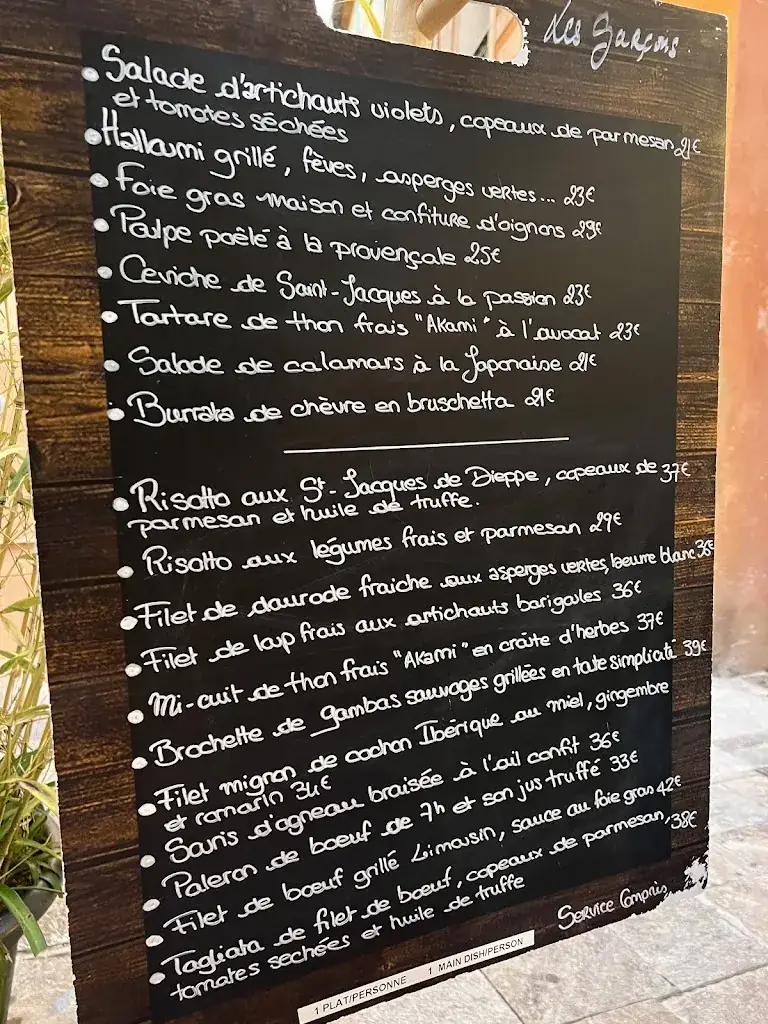 Les Garçons
• Salade d'artichauts violets, copeaux de parmesan 21€
et tomates séchées
• Halloumi grillé, fèves, asperges vertes... 23€
• Foie gras maison et confiture d'oignons 29€
• Poulpe poêlé à la provençale 25€
• Ceviche de Saint-Jacques à la passion 23€
• Tartare de thon frais "Akami" à l'avocat 23€
• Salade de calamars à la Japonaise 21€
• Burrata de chèvre en bruschetta 21€
• Risotto aux St-Jacques de Dieppe, copeaux de 37€
parmesan et huile de truffe.
• Risotto aux légumes frais et parmesan 29€
• Filet de daurade fraiche aux asperges vertes, beurre blanc 36€
• Filet de loup frais aux artichauts barigoules 36€
• Mi-cuit de thon frais "Akami" en croûte d'herbes 37€
• Brochette de gambas sauvages grillées en toute simplicité 39€
• Filet mignon de cochon Ibérique au miel, gingembre
et romarin 34€
• Souris d'agneau braisée à l'ail confit 36€
• Paleron de boeuf de 7h et son jus truffé 33€
• Filet de boeuf grillé Limousin, sauce au foie gras 42€
• Tagliata de filet de boeuf, copeaux de parmesan, 38€
tomates sechées et huile de truffe
Service Compris
1 PLAT/PERSONNE 1 MAIN DISH/PERSON